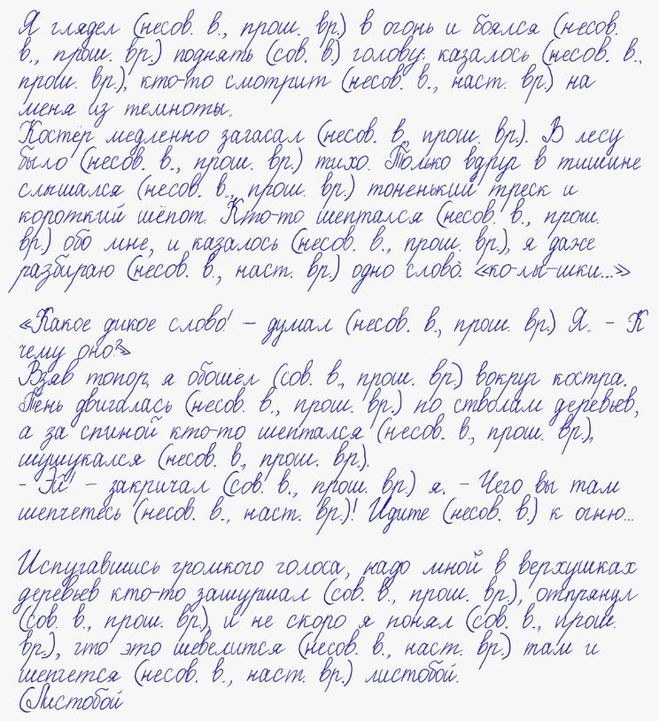 Я глядел (несов. в., прош. вр.) в огонь и боялся (несов.
в., прош. вр.) поднять (сов. в.) голову: казалось (несов. в.,
прош. вр.), кто-то смотрит (несов. в., наст. вр.) на
меня из темноты.
Костёр медленно загасал (несов. в., прош. вр.). В лесу
было (несов. в., прош. вр.) тихо. Только вдруг в тишине
слышался (несов. в., прош. вр.) тоненький треск и
короткий шёпот. Кто-то шептался (несов. в., прош.
вр.) обо мне, и казалось (несов. в., прош. вр.), я даже
разбираю (несов. в., наст. вр.) одно слово: «ко-лы-шки...»
«Какое дикое слово! – думал (несов. в., прош. вр.) Я. – К
чему оно?»
Взяв топор, я обошёл (сов. в., прош. вр.) вокруг костра.
Тень двигалась (несов. в., прош. вр.) по стволам деревьев,
а за спиной кто-то шептался (несов. в., прош. вр.),
шушукался (несов. в., прош. вр.).
- Эй! – закричал (сов. в., прош. вр.) я. – Чего вы там
шепчетесь (несов. в., наст. вр.)! Идите (несов. в.) к огню...
Испугавшись громкого голоса, надо мной в верхушках
деревьев кто-то зашуршал (сов. в., прош. вр.), отпрянул
(сов. в., прош. вр.), и не скоро я понял (сов. в., прош.
вр.), что это шевелится (несов. в., наст. вр.) там и
шепчется (несов. в., наст. вр.) листобой.
(Листобой